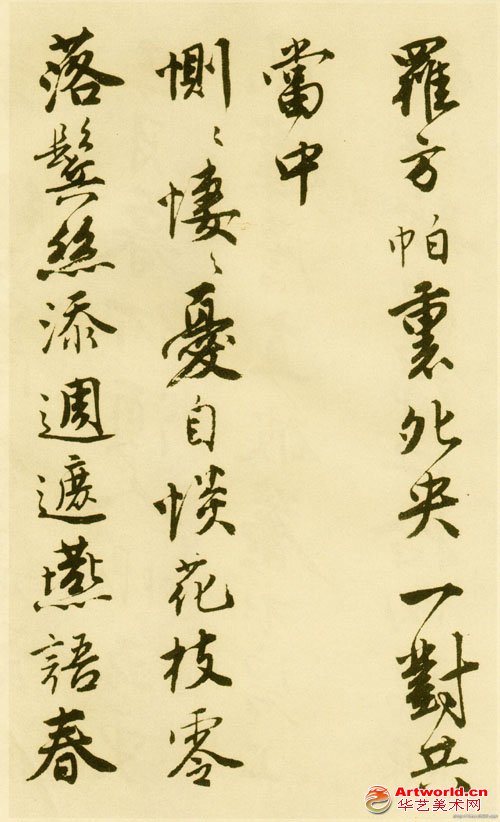 羅方帕裹夗央一對共
當中
惻〻悽〻憂自惔花枝零
落鬢絲添週遮燕語春
Artworld.cn
华艺美术网